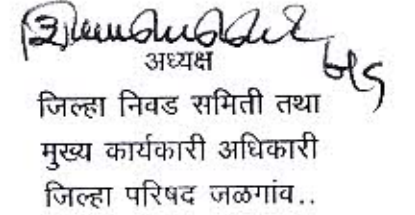 अध्यक्ष
जिल्हा निवड समिती तथा
मुख्य कार्यकारी अधिकारी
जिल्हा परिषद जळगांव..